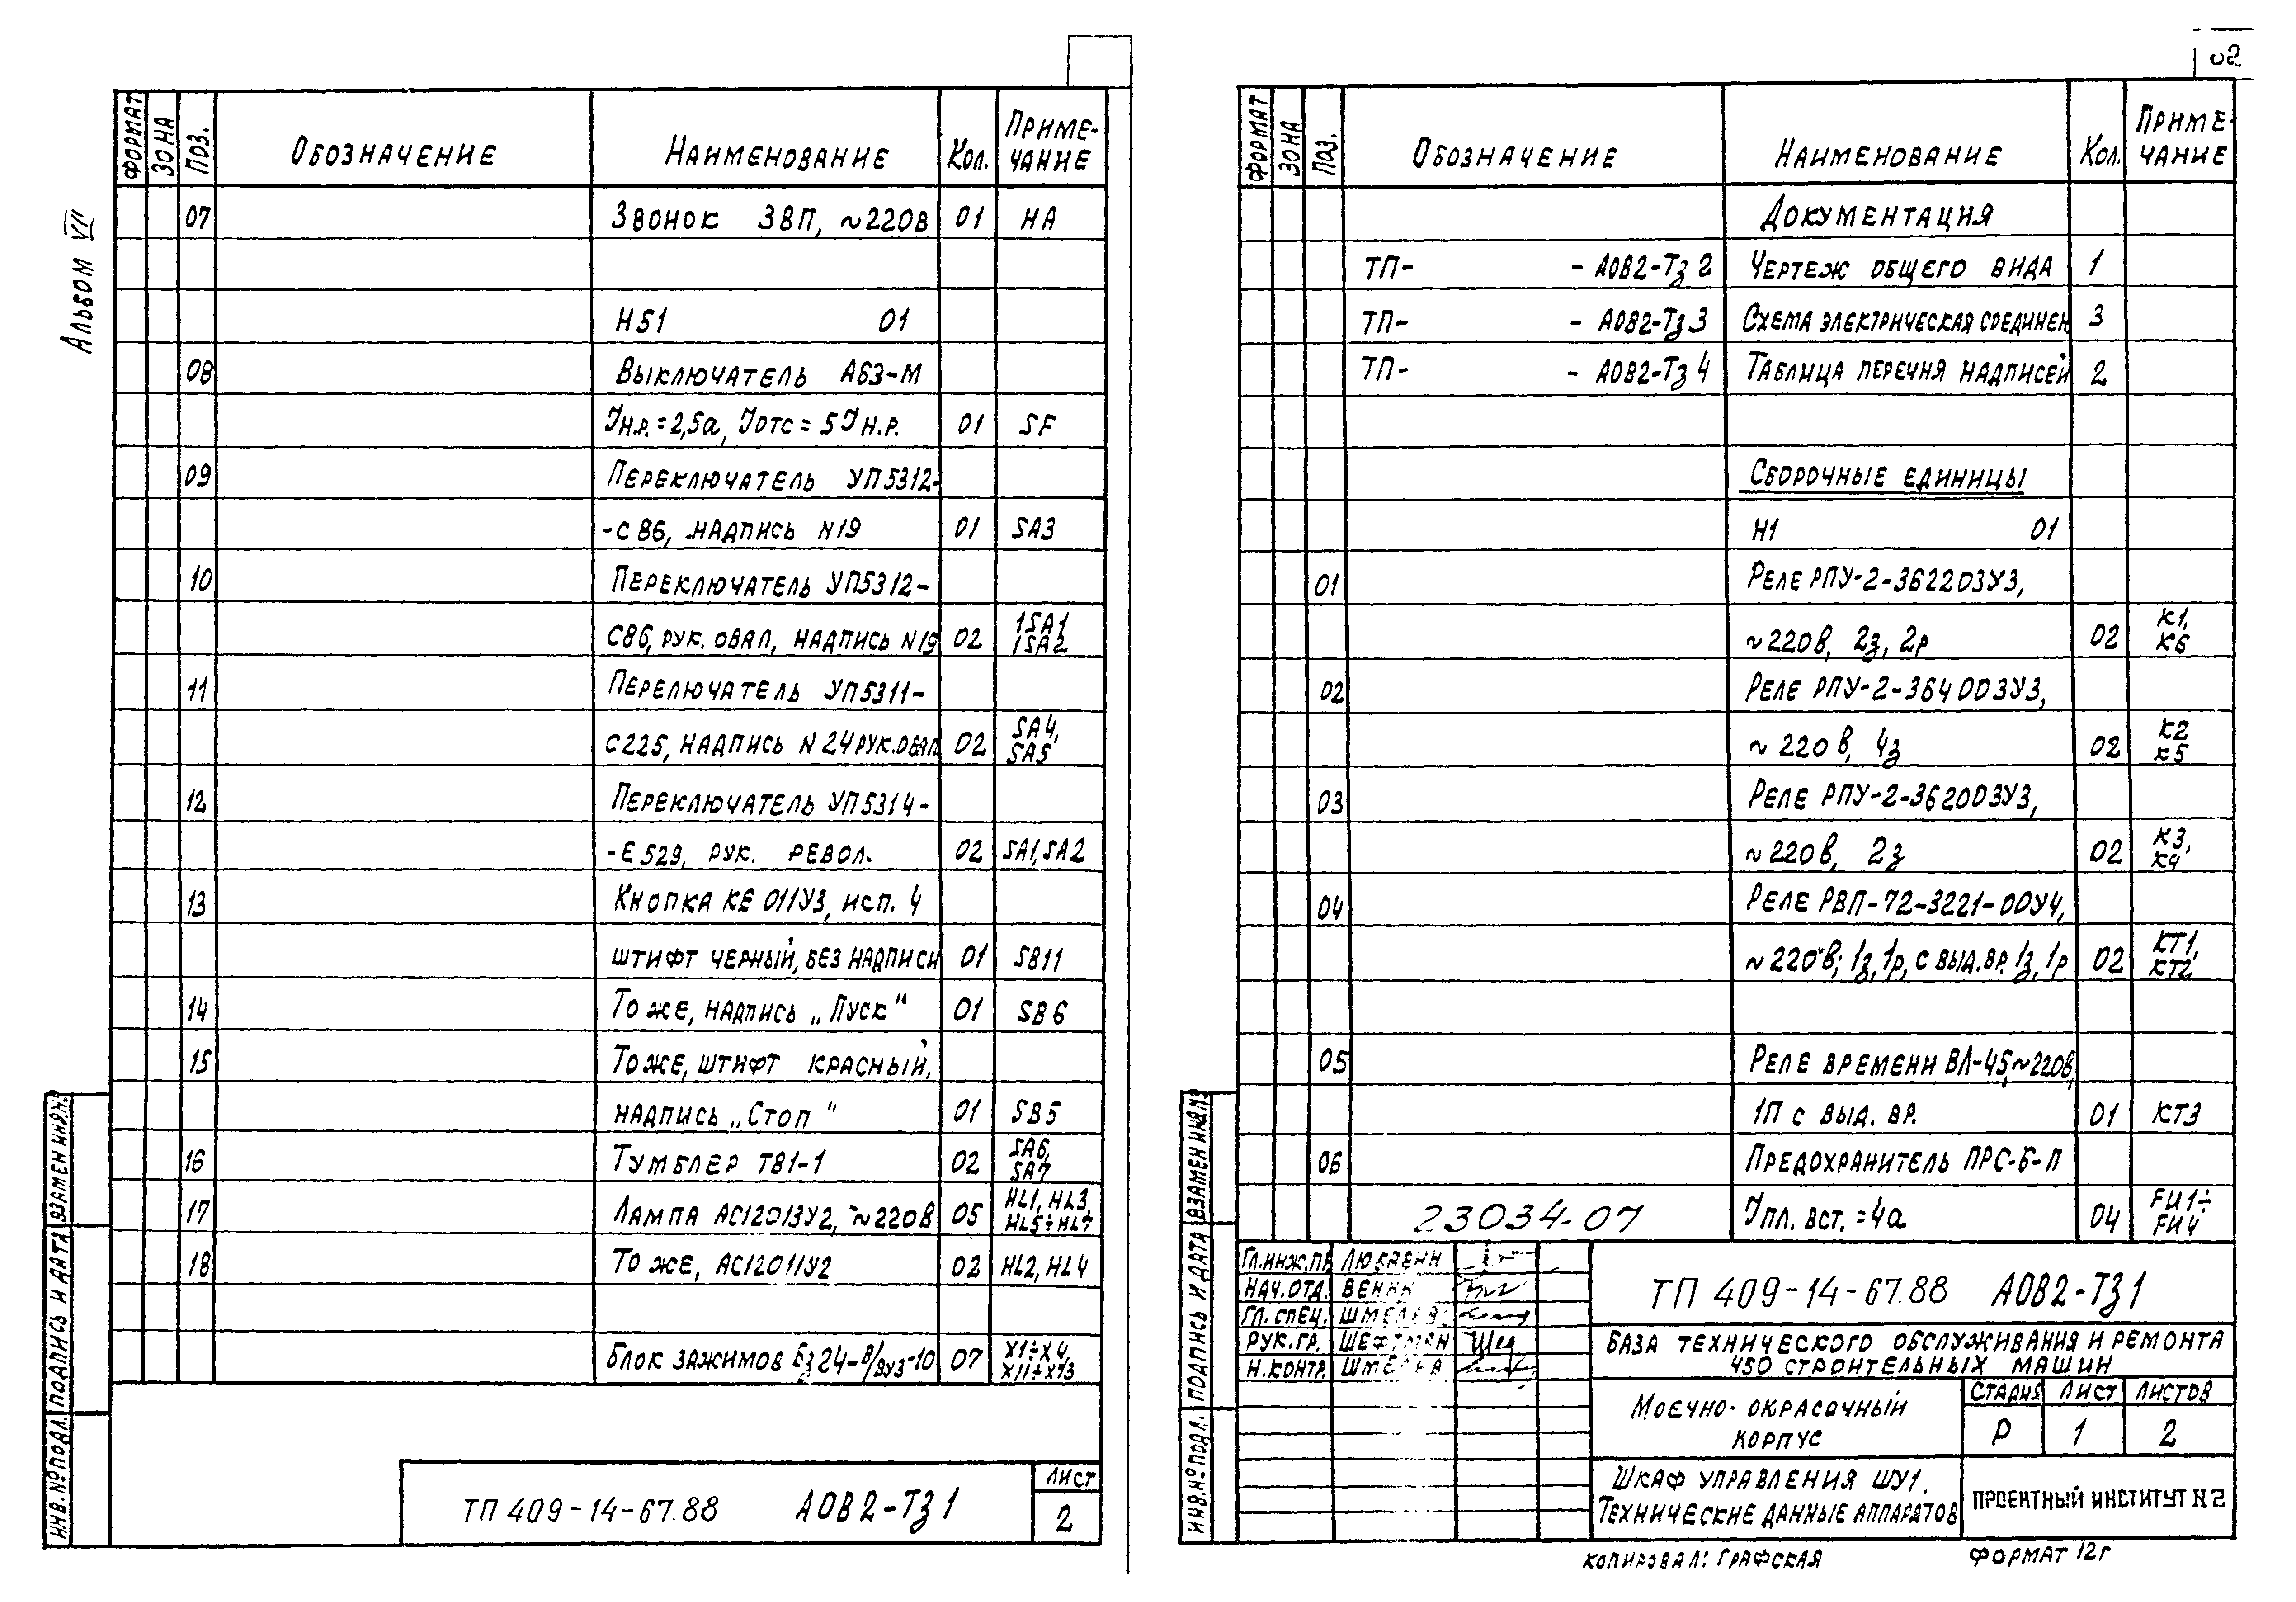 Альбом VII
ФОРМАТ ЗОНА ПОЗ. ОБОЗНАЧЕНИЕ НАИМЕНОВАНИЕ КОЛ. ПРИМЕ-
ЧАНИЕ
07 ЗВОНОК ЗВП, ~220В 01 НА
Н51 01
08 ВЫКЛЮЧАТЕЛЬ А63-М
Iн.р. = 2,5а, Iотс = 5 Iн.р. 01 SF
09 ПЕРЕКЛЮЧАТЕЛЬ УП5312-
-С86, НАДПИСЬ N19 01 SA3
10 ПЕРЕКЛЮЧАТЕЛЬ УП5312-
С86, РУК. ОВАЛ, НАДПИСЬ N19 02 1SA1
1SA2
11 ПЕРЕЛЮЧАТЕЛЬ УП5311-
С225, НАДПИСЬ N24 РУК.ОВАЛ 02 SA4,
SA5
12 ПЕРЕКЛЮЧАТЕЛЬ УП5314-
-Е529, РУК. РЕВОЛ. 02 SA1, SA2
13 КНОПКА КЕ 011У3, ИСП. 4
ШТИФТ ЧЕРНЫЙ, БЕЗ НАДПИСИ 01 SB11
14 ТО ЖЕ, НАДПИСЬ „ПУСК" 01 SB6
15 ТО ЖЕ, ШТИФТ КРАСНЫЙ,
НАДПИСЬ „СТОП" 01 SB5
16 ТУМБЛЕР ТВ1-1 02 SA6,
SA7
17 ЛАМПА АС12013У2, ~220В 05 HL1, HL3,
HL5÷HL7
18 ТО ЖЕ, АС12011У2 02 HL2, HL4
БЛОК ЗАЖИМОВ Бз24-В/ВУ3-10 07 X1÷X4,
X11÷X13
ТП 409-14-67.88 АОВ2-ТЗ1
ЛИСТ
2
ИНВ.№ПОДЛ. ПОДПИСЬ И ДАТА ВЗАМЕН ИНВ.№
02
ФОРМАТ ЗОНА ПОЗ. ОБОЗНАЧЕНИЕ НАИМЕНОВАНИЕ КОЛ. ПРИМЕ-
ЧАНИЕ
ДОКУМЕНТАЦИЯ
ТП- - АОВ2-ТЗ2 ЧЕРТЕЖ ОБЩЕГО ВИДА 1
ТП- - АОВ2-ТЗ3 СХЕМА ЭЛЕКТРИЧЕСКАЯ СОЕДИНЕН 3
ТП- - АОВ2-ТЗ4 ТАБЛИЦА ПЕРЕЧНЯ НАДПИСЕЙ 2
СБОРОЧНЫЕ ЕДИНИЦЫ
Н1 01
01 РЕЛЕ РПУ-2-362203У3,
~220В, 2з, 2р 02 К1,
К6
02 РЕЛЕ РПУ-2-364003У3,
~220В, 4з 02 К2
К5
03 РЕЛЕ РПУ-2-362003У3,
~220В, 2з 02 К3,
К4
04 РЕЛЕ РВП-72-3221-00У4,
~220В; 1з, 1р, С ВЫД.ВР. 1з, 1р 02 КТ1,
КТ2
05 РЕЛЕ ВРЕМЕНИ ВЛ-45, ~220В,
1П С ВЫД. ВР. 01 КТ3
06 ПРЕДОХРАНИТЕЛЬ ПРС-6-П
23034-07 Iпл. вст. = 4а 04 FU1÷
FU4
ГЛ.ИНЖ.ПР ЛЮБАВИН
НАЧ.ОТД.
ГЛ. СПЕЦ.
РУК.ГР. ШЕФТМАН
Н.КОНТР.
ТП 409-14-67.88 АОВ2-ТЗ1
БАЗА ТЕХНИЧЕСКОГО ОБСЛУЖИВАНИЯ И РЕМОНТА
450 СТРОИТЕЛЬНЫХ МАШИН
МОЕЧНО-ОКРАСОЧНЫЙ
КОРПУС
СТАДИЯ ЛИСТ ЛИСТОВ
Р 1 2
ШКАФ УПРАВЛЕНИЯ ШУ1.
ТЕХНИЧЕСКИЕ ДАННЫЕ АППАРАТОВ
ПРОЕКТНЫЙ ИНСТИТУТ N2
ИНВ.№ПОДЛ. ПОДПИСЬ И ДАТА ВЗАМЕН ИНВ.№
КОПИРОВАЛ: ГРАФСКАЯ ФОРМАТ 12Г